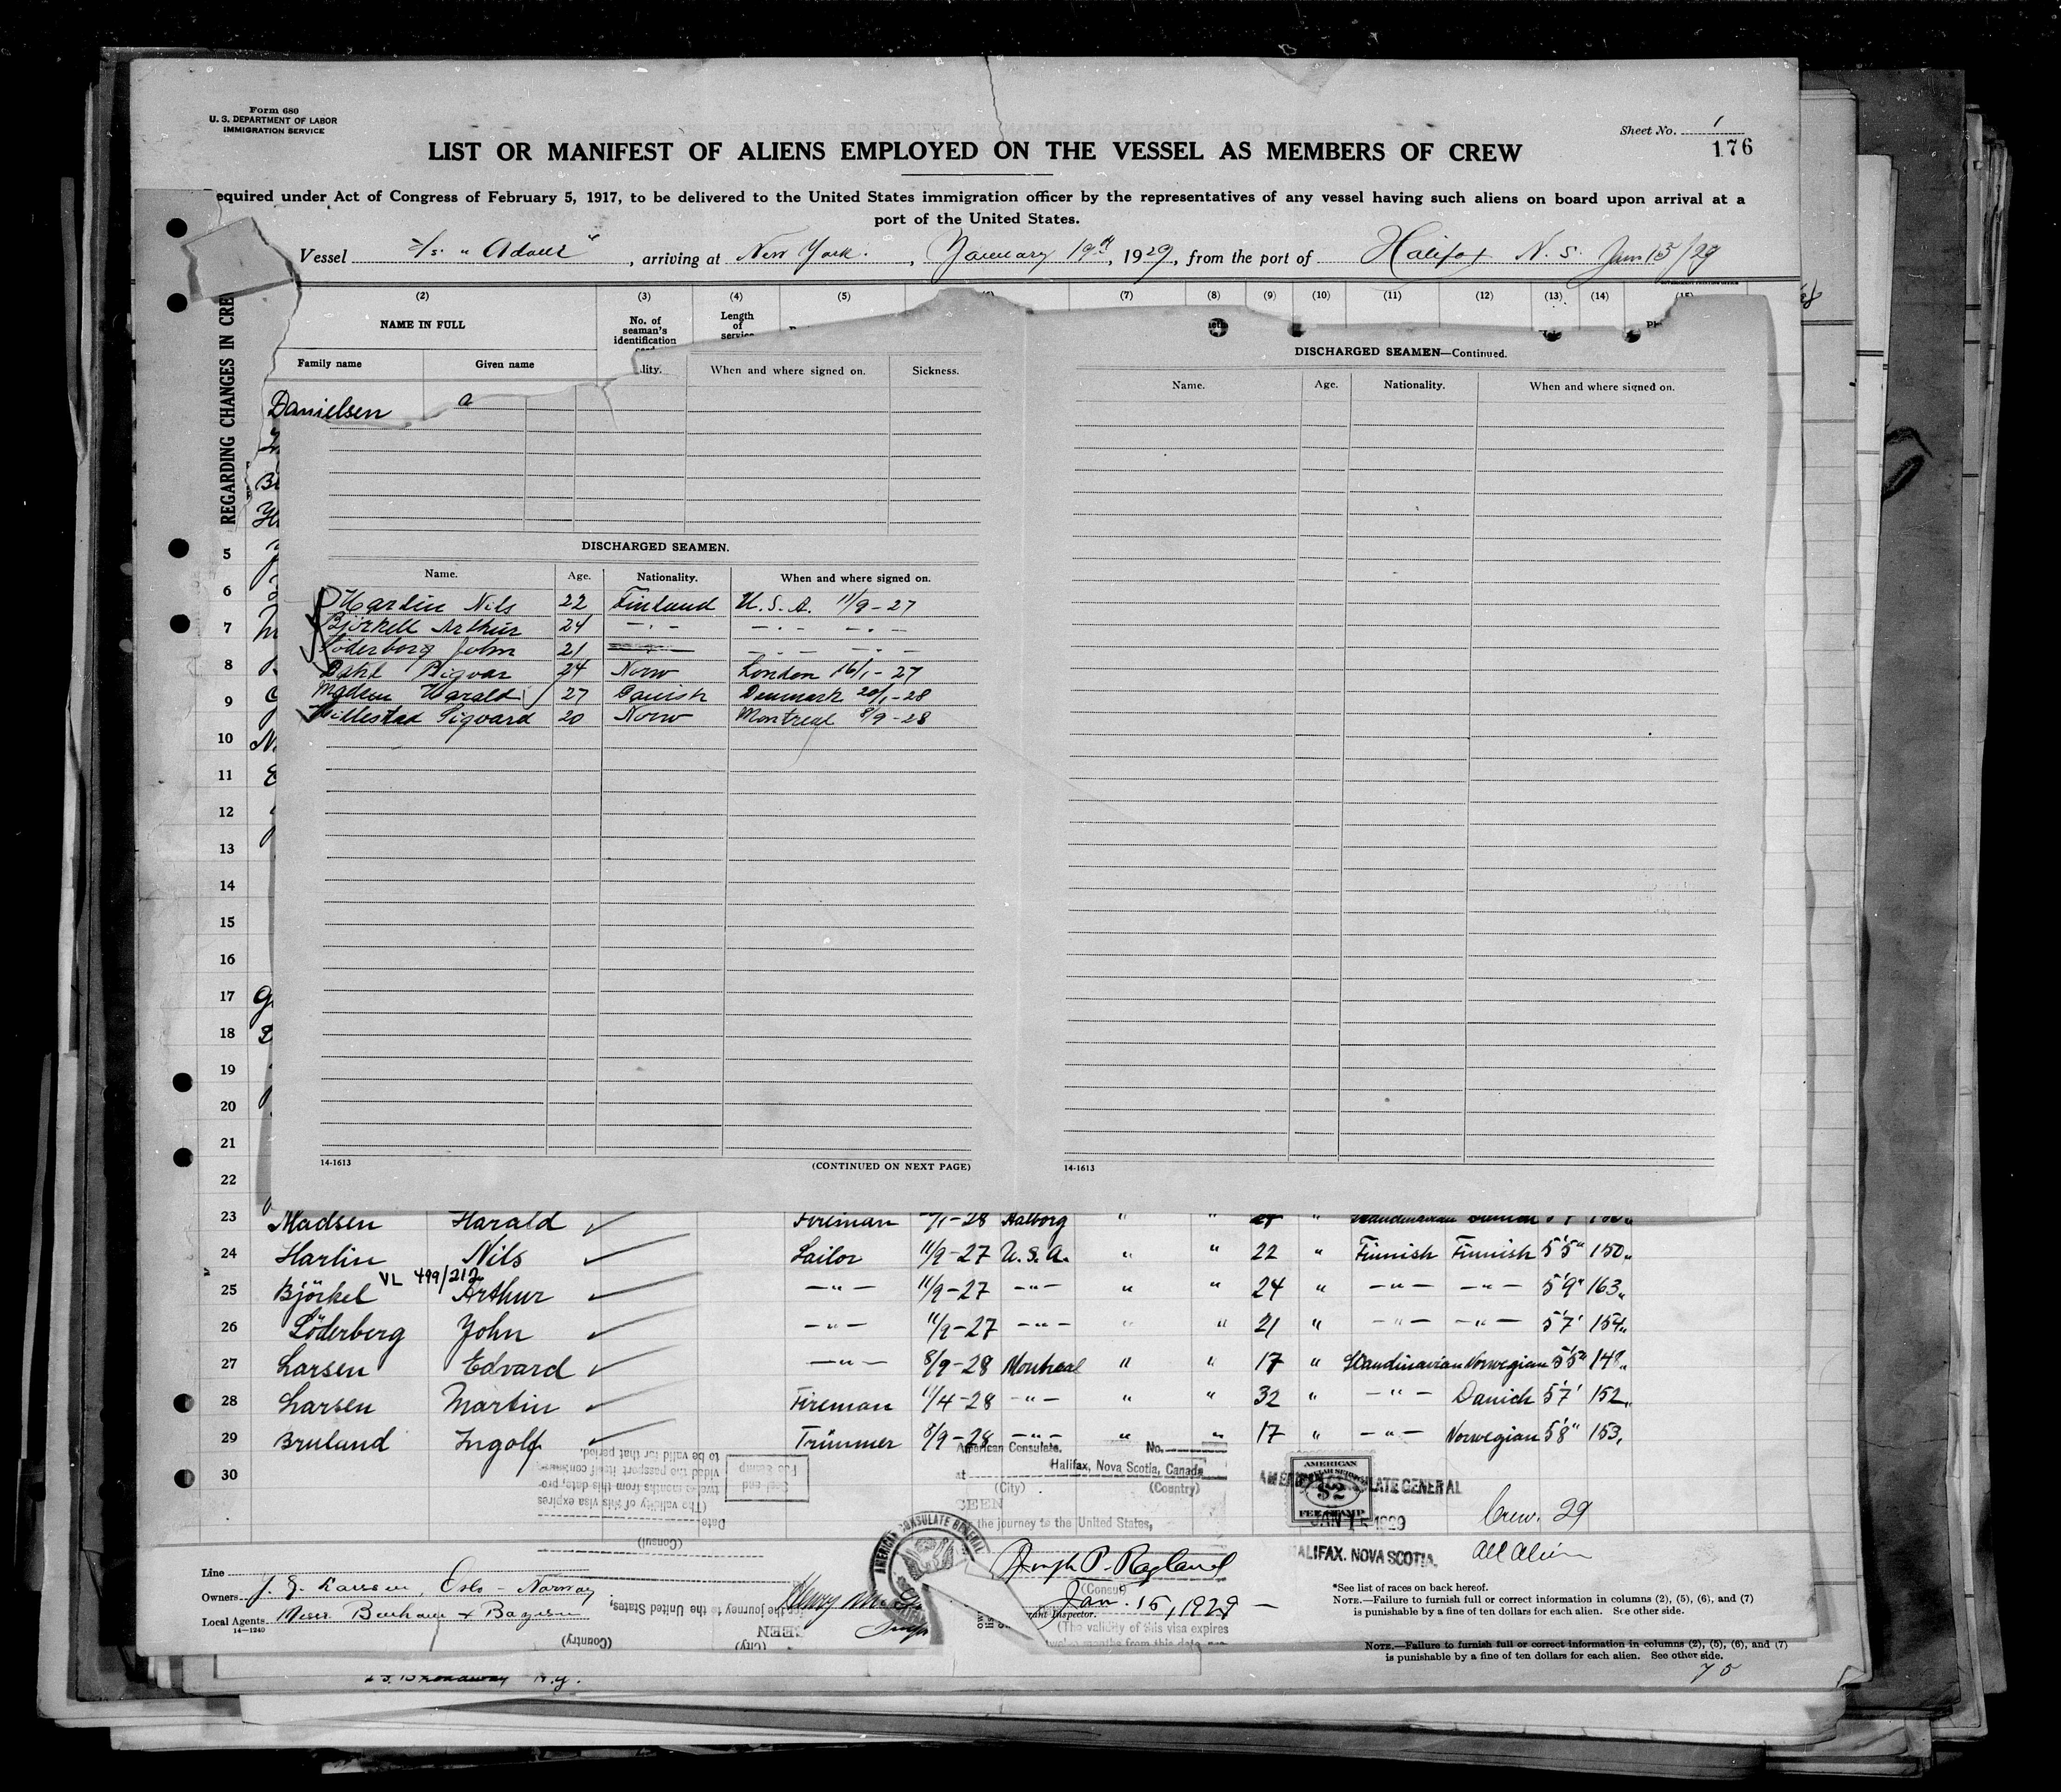 Form 680
U. S. DEPARTMENT OF LABOR
IMMIGRATION SERVICE
Sheet No. 1
176
LIST OR MANIFEST OF ALIENS EMPLOYED ON THE VESSEL AS MEMBERS OF CREW
equired under Act of Congress of February 5, 1917, to be delivered to the United States immigration officer by the representatives of any vessel having such aliens on board upon arrival at a
port of the United States.
Vessel S/s. "             ", arriving at New York., January 19th, 1929, from the port of Halifax N. S. Jan 15/29
(2) (3) (4) (5) (7) (8) (9) (10) (11) (12) (13) (14)
NAME IN FULL
No. of seaman's identification
Length of
Family name Given name
REGARDING CHANGES IN CRE
Danielsen a
lity. When and where signed on. Sickness.
DISCHARGED SEAMEN—Continued.
Name. Age. Nationality. When and where signed on.
DISCHARGED SEAMEN.
Name. Age. Nationality. When and where signed on.
Harlin Nils 22 Finland U. S. A. 11/9-27
Björkell Arthur 24 — " — — " — — " —
Söderborg John 21 — " — — " —
Dahl 24 Norw London 16/1-27
Madsen Harald 27 Danish Denmark 20/1-28
Sigvard 20 Norw Montreal 8/9-28
5
6
7
8
9
10
11
12
13
14
15
16
17
18
19
20
21
22
14-1613 (CONTINUED ON NEXT PAGE) 14-1613
23 Madsen Harald Fireman /1-28 Aalborg " " "
24 Harlin Nils Sailor 11/9-27 U.S.A. " " 22 " Finnish Finnish 5'5" 150
VL 499/212
25 Björkel Arthur —"— 11/9-27 —"— " " 24 " —"— —"— 5'9" 163
26 Söderberg John —"— 11/9-27 —"— " " 21 " —"— —"— 5'7' 154
27 Larsen Edvard —"— 8/9-28 Montreal " " 17 " Scandinavian Norwegian 5'5" 148
28 Larsen Martin Fireman 11/4-28 —"— " " 32 " —"— Danich 5'7' 152
29 Bruland Ingolf Trimmer 8/9-28 —"— " " 17 " —"— Norwegian 5'8" 153
30
American Consulate. No.
at Halifax, Nova Scotia, Canada
(City) (Country)
SEEN
the journey to the United States,
(The validity of this visa expires
twelve months from this date, pro-
vided the passport itself continues
to be valid for that period.
Date
(Consul)
AMERICAN CONSULATE GENERAL
AMERICAN CONSULATE GENERAL
AMERICAN
$2
FEE STAMP
JAN 15 1929
HALIFAX, NOVA SCOTIA.
Crew. 29
all alien
Joseph P. Ragland
(Consul)
Jan. 15, 1929 —
Inspector.
(The validity of this visa expires
Line
Owners Oslo - Norway
Local Agents
14—1240
for the journey to the United States,
SEEN
(City) (Country)
*See list of races on back hereof.
NOTE.—Failure to furnish full or correct information in columns (2), (5), (6), and (7)
is punishable by a fine of ten dollars for each alien. See other side.
NOTE.—Failure to furnish full or correct information in columns (2), (5), (6), and (7)
is punishable by a fine of ten dollars for each alien. See other side.
Broadway N.Y.